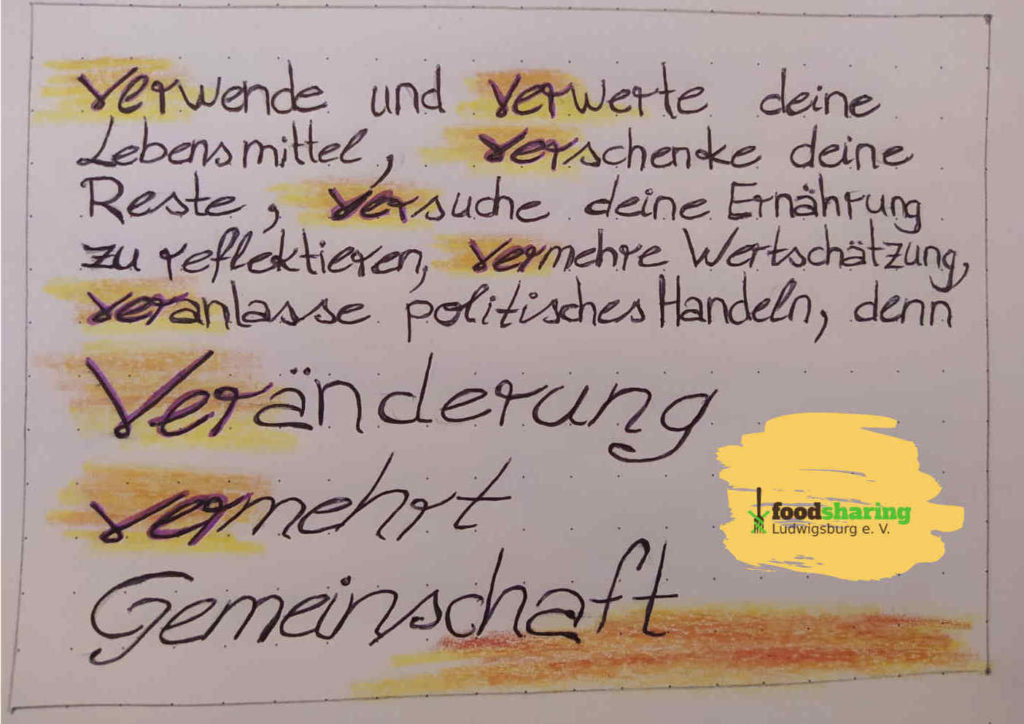 verwende und verwerte deine
Lebensmittel, verschenke deine
Reste, versuche deine Ernährung
zu reflektieren, vermehre Wertschätzung,
veranlasse politisches Handeln, denn
Veränderung
vermehrt
Gemeinschaft
foodsharing
Ludwigsburg e. V.